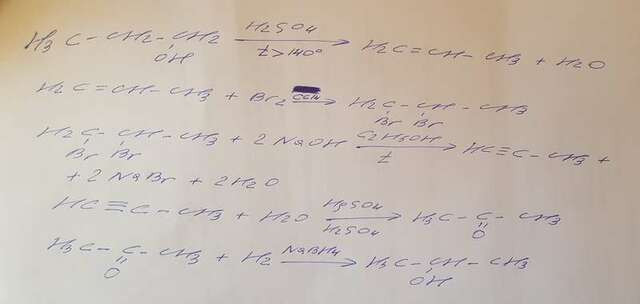 H3C-CH2-CH2 H2SO4 → H2C=CH-CH3 + H2O
OH t>140°
H2C=CH-CH3 + Br2 CCl4 → H2C-CH-CH3
Br Br
H2C-CH-CH3 + 2 NaOH C2H5OH → HC≡C-CH3 +
Br Br t
+ 2 NaBr + 2H2O
HC≡C-CH3 + H2O HgSO4 → H3C-C-CH3
H2SO4 O
H3C-C-CH3 + H2 NaBH4 → H3C-CH-CH3
O OH